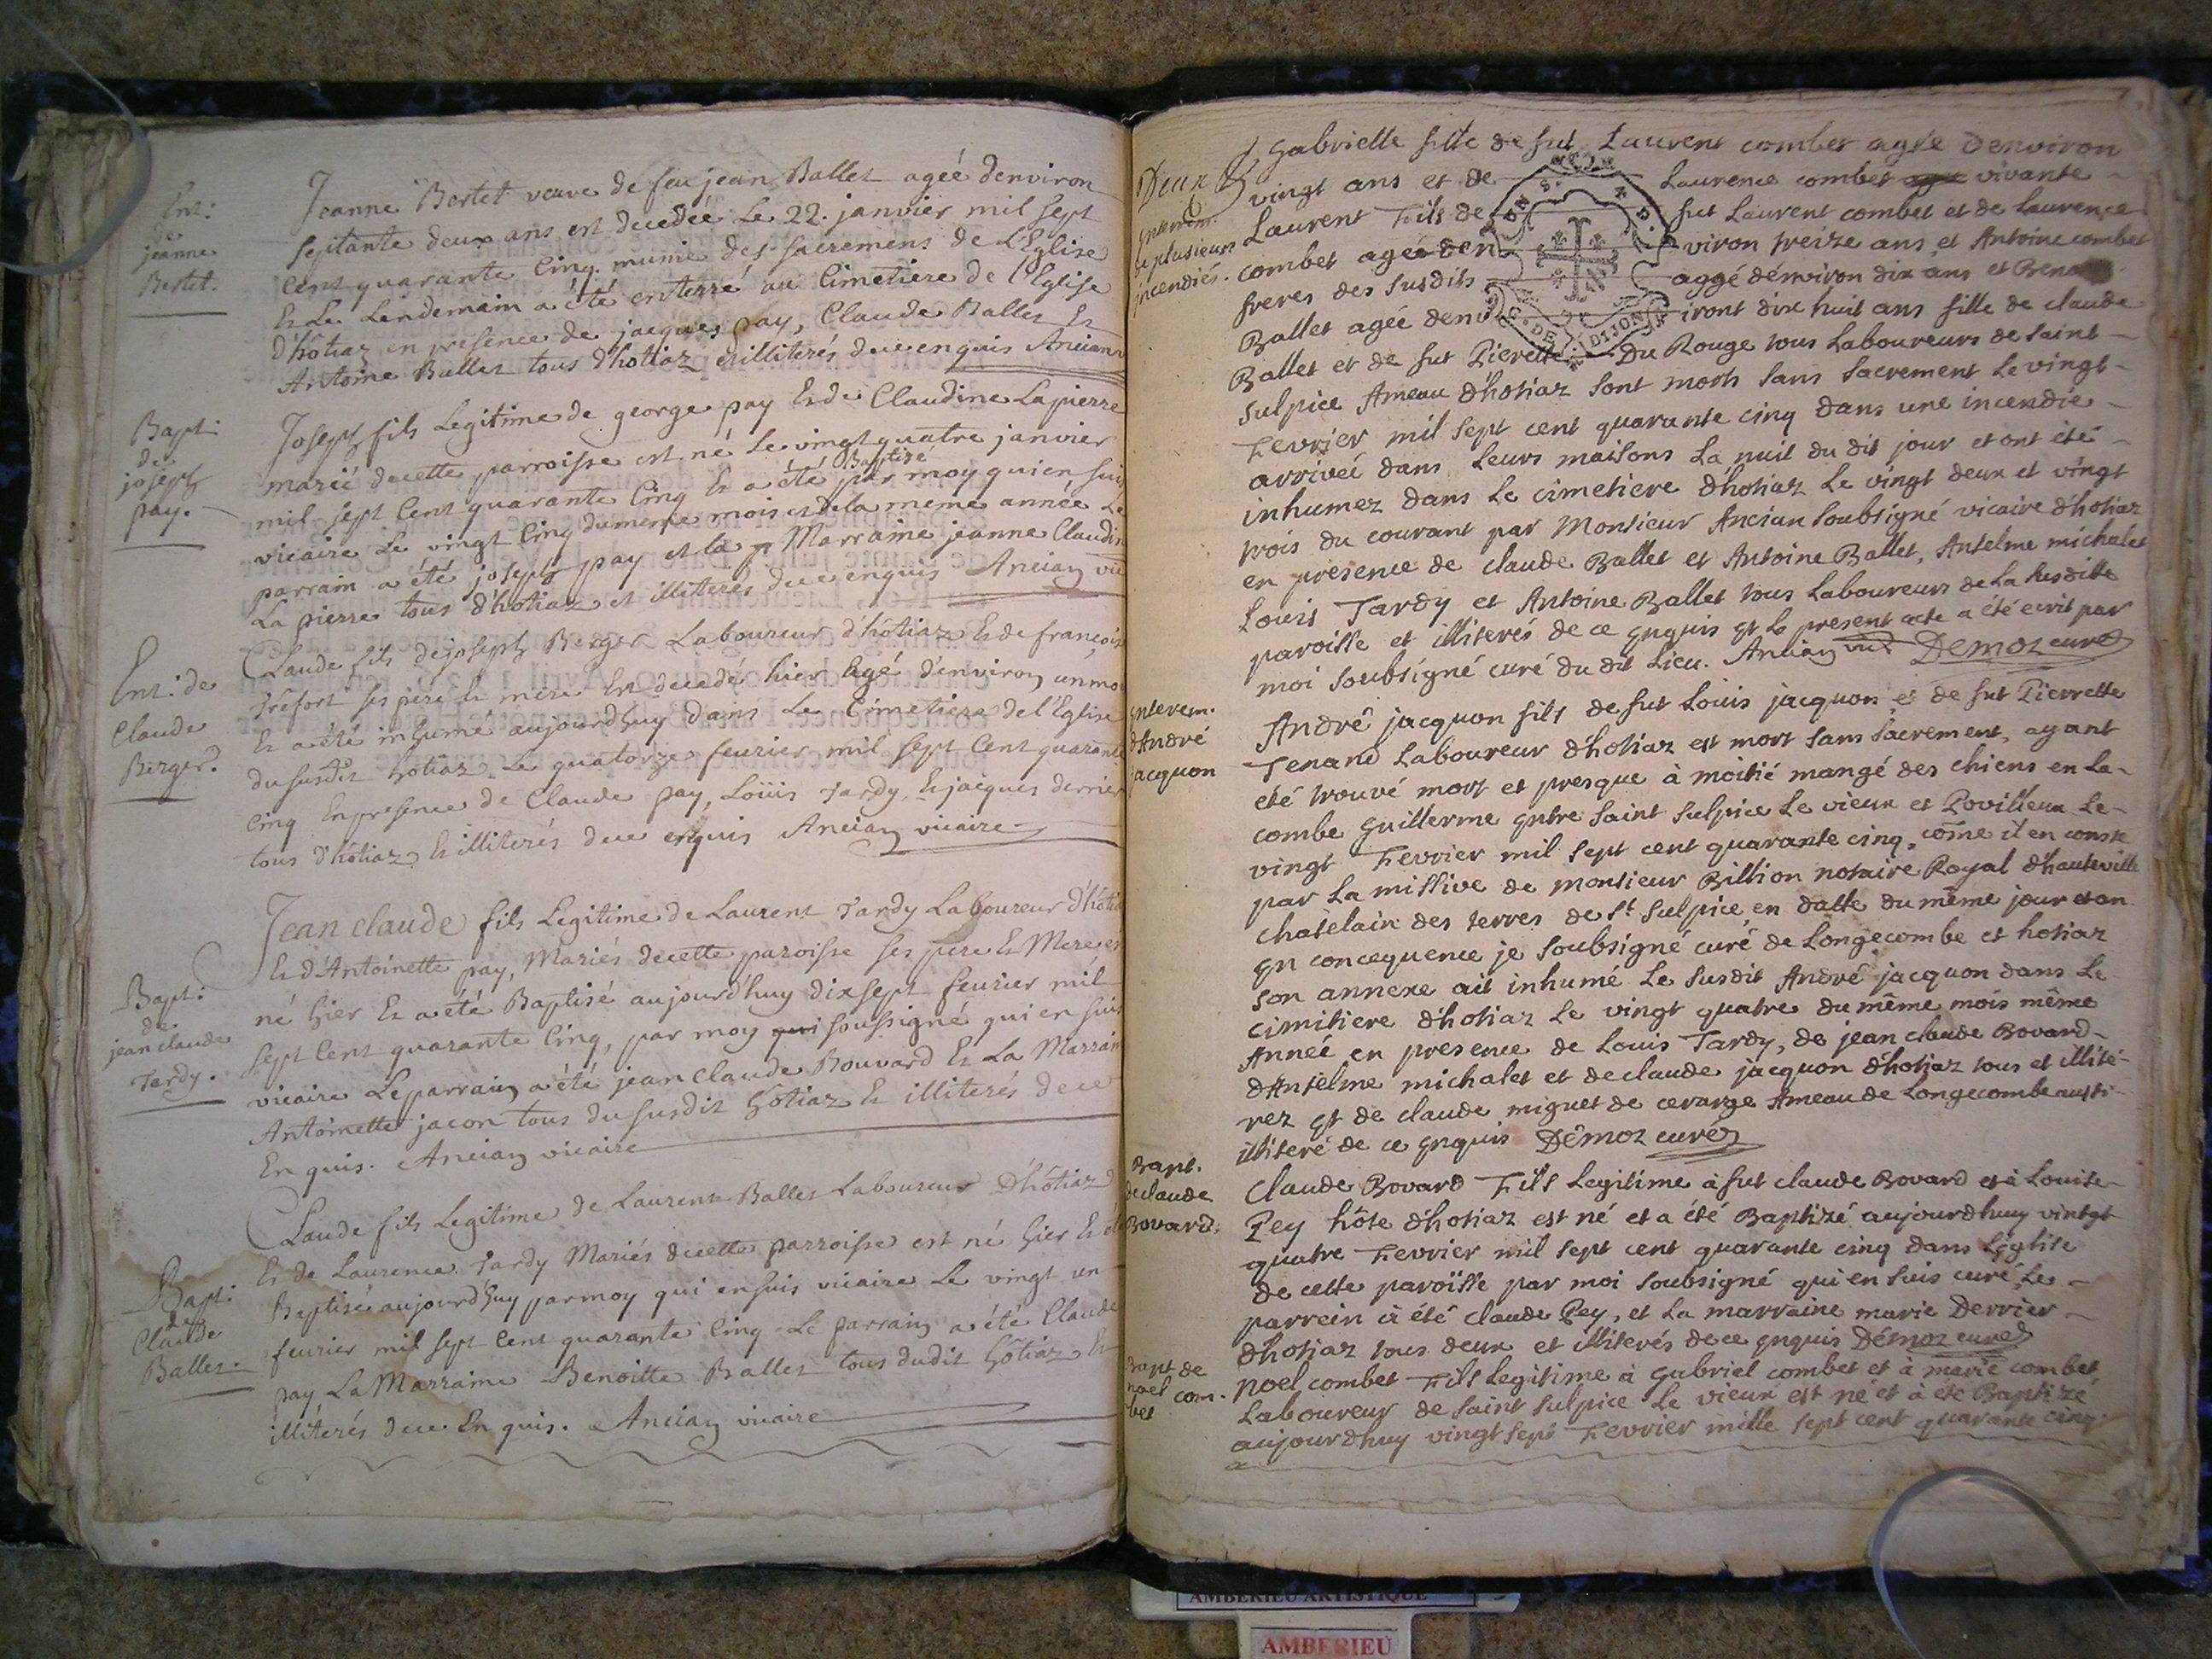 Ent:
de
jeanne
Bertet.
Jeanne Bertet veuve de feu jean Ballet agée denviron
septante deux ans est decedée Le 22. janvier mil sept
Cent quarante Cinq. munie des sacremens de L'Eglise
Et Le Lendemain a été enterré au Cimetiere de l'Eglise
d'hôtiaz en presence de jacques pay, Claude Ballet Et
Antoine Ballet tous d'hotiaz et illiterés de ce enquis Ancian
Bapt:
de
joseph
pay.
Joseph fils Legitime de george pay Et de Claudine Lapierre
marié de cette parroisse est né Le vingt quatre janvier
mil sept Cent quarante Cinq Et a été Baptisé par moy qui en suis
vicaire Le vingt Cinq du meme mois et de la meme année Le
parrain a été joseph pay et la Marraine jeanne Claudine
La pierre tous d'hôtiaz et illiterés de ce enquis Ancian vic
Ent: de
Claude
Berger.
Claude fils de joseph Berger Laboureur d'hôtiaz Et de françoise
trefort ses pere Et mere Est decedé hier Agé d'environ un mo
Et a été inhumé aujourdhuy dans Le Cimetiere de l'Eglise
du susdit hotiaz Le quatorze feurier mil sept Cent quarante
Cinq En presence de Claude pay, Loüis Tardy, Et jacques derrier
tous d'hôtiaz Et illiterés de ce enquis Ancian vicaire
Bapt:
de
jean claude
Tardy.
Jean claude fils Legitime de Laurent Tardy Laboureur d'hôtia
Et d'Antoinette pay, Mariés de cette paroisse ses pere Et Mere, est
né hier Et a été Baptisé aujourd'huy dix sept feurier mil
sept Cent quarante Cinq, par moy qui soussigné qui en suis
vicaire Le parrain a été jean Claude Bouvard Et La Marrain
Antoinette jacon tous du susdit hôtiaz Et illiterés de ce
En quis. Ancian vicaire
Bapt:
de
Claude
Ballet.
Claude fils Legitime de Laurent Ballet Laboureur D'hôtiaz
Et de Laurence Tardy Mariés de cette parroisse est né hier Et été
Baptisé aujourd'huy par moy qui en suis vicaire Le vingt un
feurier mil sept Cent quarante Cinq Le parrain a été Claude
pay La Marraine Benoitte Ballet tous dudit hôtiaz Et
illiterés de ce En quis. Ancian vicaire
Deux
Enterrem.
de plusieurs
incendiés.
Gabrielle fille de fut Laurent combet agée denviron
vingt ans et de Laurence combet vivante
Laurent Fils de fut Laurent combet et de Laurence
combet ageé den viron treize ans et Antoine combet
freres des susdits aggé démviron dix ans et
Ballet ageé denv iront dix huit ans fille de claude
Ballet et de fut Pierette Du Rouge tous Laboureurs de saint
sulpice Ameau d'hotiaz sont morts sans sacrement Le vingt
Fevrier mil sept cent quarante cinq dans une incendie
arriveé dans Leurs maisons La nuit du dit jour et ont été
inhumez dans Le cimetiere d'hotiaz Le vingt deux et vingt
trois du courant par Monsieur Ancian soubsigné vicaire d'hotiaz
en presence de claude Ballet et Antoine Ballet, Anselme michalet
Louis Tardy et Antoine Ballet tous Laboureurs de La susditte
paroisse et illiterés de ce enquis et Le present acte a été ecrit par
moi soubsigné curé du dit Lieu. Ancian vic Demoz curé
DIJON
Enterem.
d'André
jacquon
André jacquon fils de fut Louis jacquon et de fut Pierrette
Tenand Laboureur d'hotiaz est mort sans sacrement, ayant
eté trouvé mort et presque à moitié mangé des chiens en La
combe Guillerme entre saint sulpice Le vieux et Povillieux Le
vingt Fevrier mil sept cent quarante cinq, come il en conste
par La missive de monsieur Billion notaire Royal d'hauteville
chatelain des terres de St sulpice en datte du même jour et an
en concequence je soubsigné curé de Longecombe et hotiaz
son annexe ait inhumé Le susdit André jacquon dans Le
cimitiere d'hotiaz Le vingt quatre du même mois même
Anneé en presence de Louis Tardy, de jean claude Bovard
d'Anselme michalet et de claude jacquon d'hotiaz tous et illité-
rez et de claude miguet de cevarge Ameau de Longecombe aussi
illiteré de ce enquis Démoz curé
Bapt.
de claude
Bovard.
Claude Bovard Fils Legitime à fut claude Bovard et à Louise
Pey hôte d'hotiaz est né et a été Baptizé aujourdhuy vintgt
quatre Fevrier mil sept cent quarante cinq dans L'eglise
de cette paroisse par moi soubsigné qui en suis curé, Le
parrein à été claude Pey, et La marraine marie Derrier
d'hotiaz tous deux et illiterés de ce enquis Démoz curé
Bapt de
noel com-
bet
noel combet Fils Legitime à Gabriel combet et à marie combet
Laboureur de saint sulpice Le vieux est né et à été Baptizé
aujourdhuy vingt sept Fevrier mille sept cent quarante cinq
AMBERIEU ARTISTIQUE
AMBERIEU